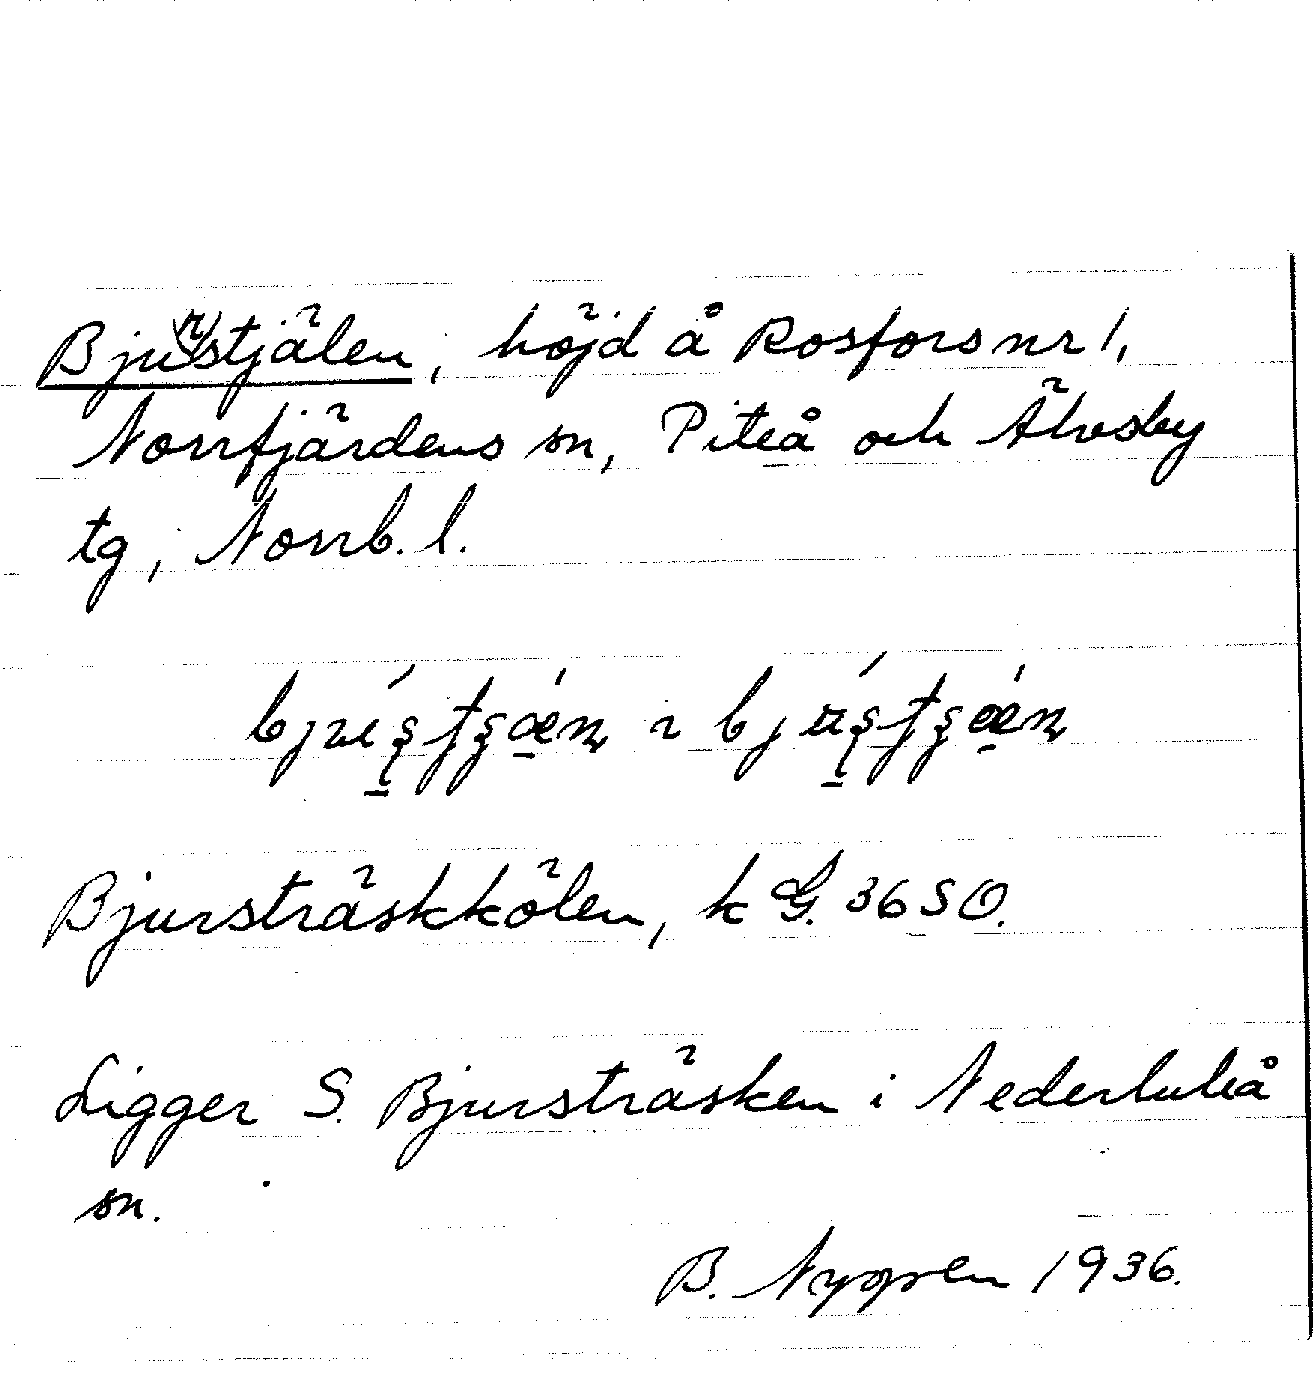 Bju(r)stjälen, höjd å Rosfors nr 1,
Norrfjärdens sn, Piteå och Älvsby
tg, Norrb. l.
Bjursträskkölen, k G. 36 SO.
Ligger S. Bjursträsken i Nederluleå
sn.
B. Nygren 1936.